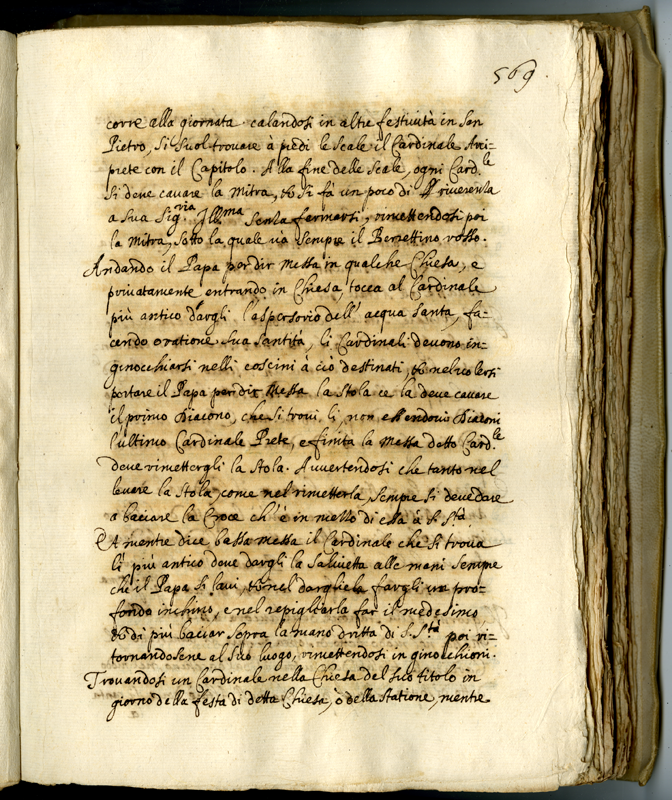 569.
corre alla giornata. calandosi in altre festività in San
Pietro, si suol trovare à piedi le scale il Cardinale Arci=
prete con il Capitolo. Alla fine delle scale, ogni Card.le
si deve cavare la Mitra, et si fà un poco di riverenza
a sua Sig.ria Ill.ma senza fermarsi, rimettendosi poi
la Mitra, sotto la quale và sempre il Berrettino rosso.
Andando il Papa per dir Messa in qualche Chiesa, e
privatamente entrando in Chiesa, tocca al Cardinale
più antico dargli l'aspersorio dell' acqua santa, fa=
cendo oratione sua Santità, li Cardinali devono in=
ginocchiarsi nelli coscini à ciò destinati, et nel volersi
portare il Papa per dir Messa la stola ce la deve cavare
il primo Diacono, che si trovi lì, non essendovi Diaconi
l'ultimo Cardinale Prete, e finita la Messa detto Card.le
deve rimettergli la stola. Avvertendosi che tanto nel
levare la stola, come nel rimetterla sempre si deve dare
a baciare la Croce ch' è in mezzo di essa à S. S.tà
Et mentre dice bassa messa il Cardinale che si trova
lì più antico deve dargli la salvietta alle mani sempre
che il Papa si lavi, et nel dargliela fargli un pro=
fondo inchino, e nel repigliarla far il medesimo
et di più baciar sopra la mano dritta di S. S.tà poi ri=
tornandosene al suo luogo, rimettendosi in ginocchioni.
Trovandosi un Cardinale nella Chiesa del suo titolo in
giorno della festa di detta Chiesa, ò della statione, mentre